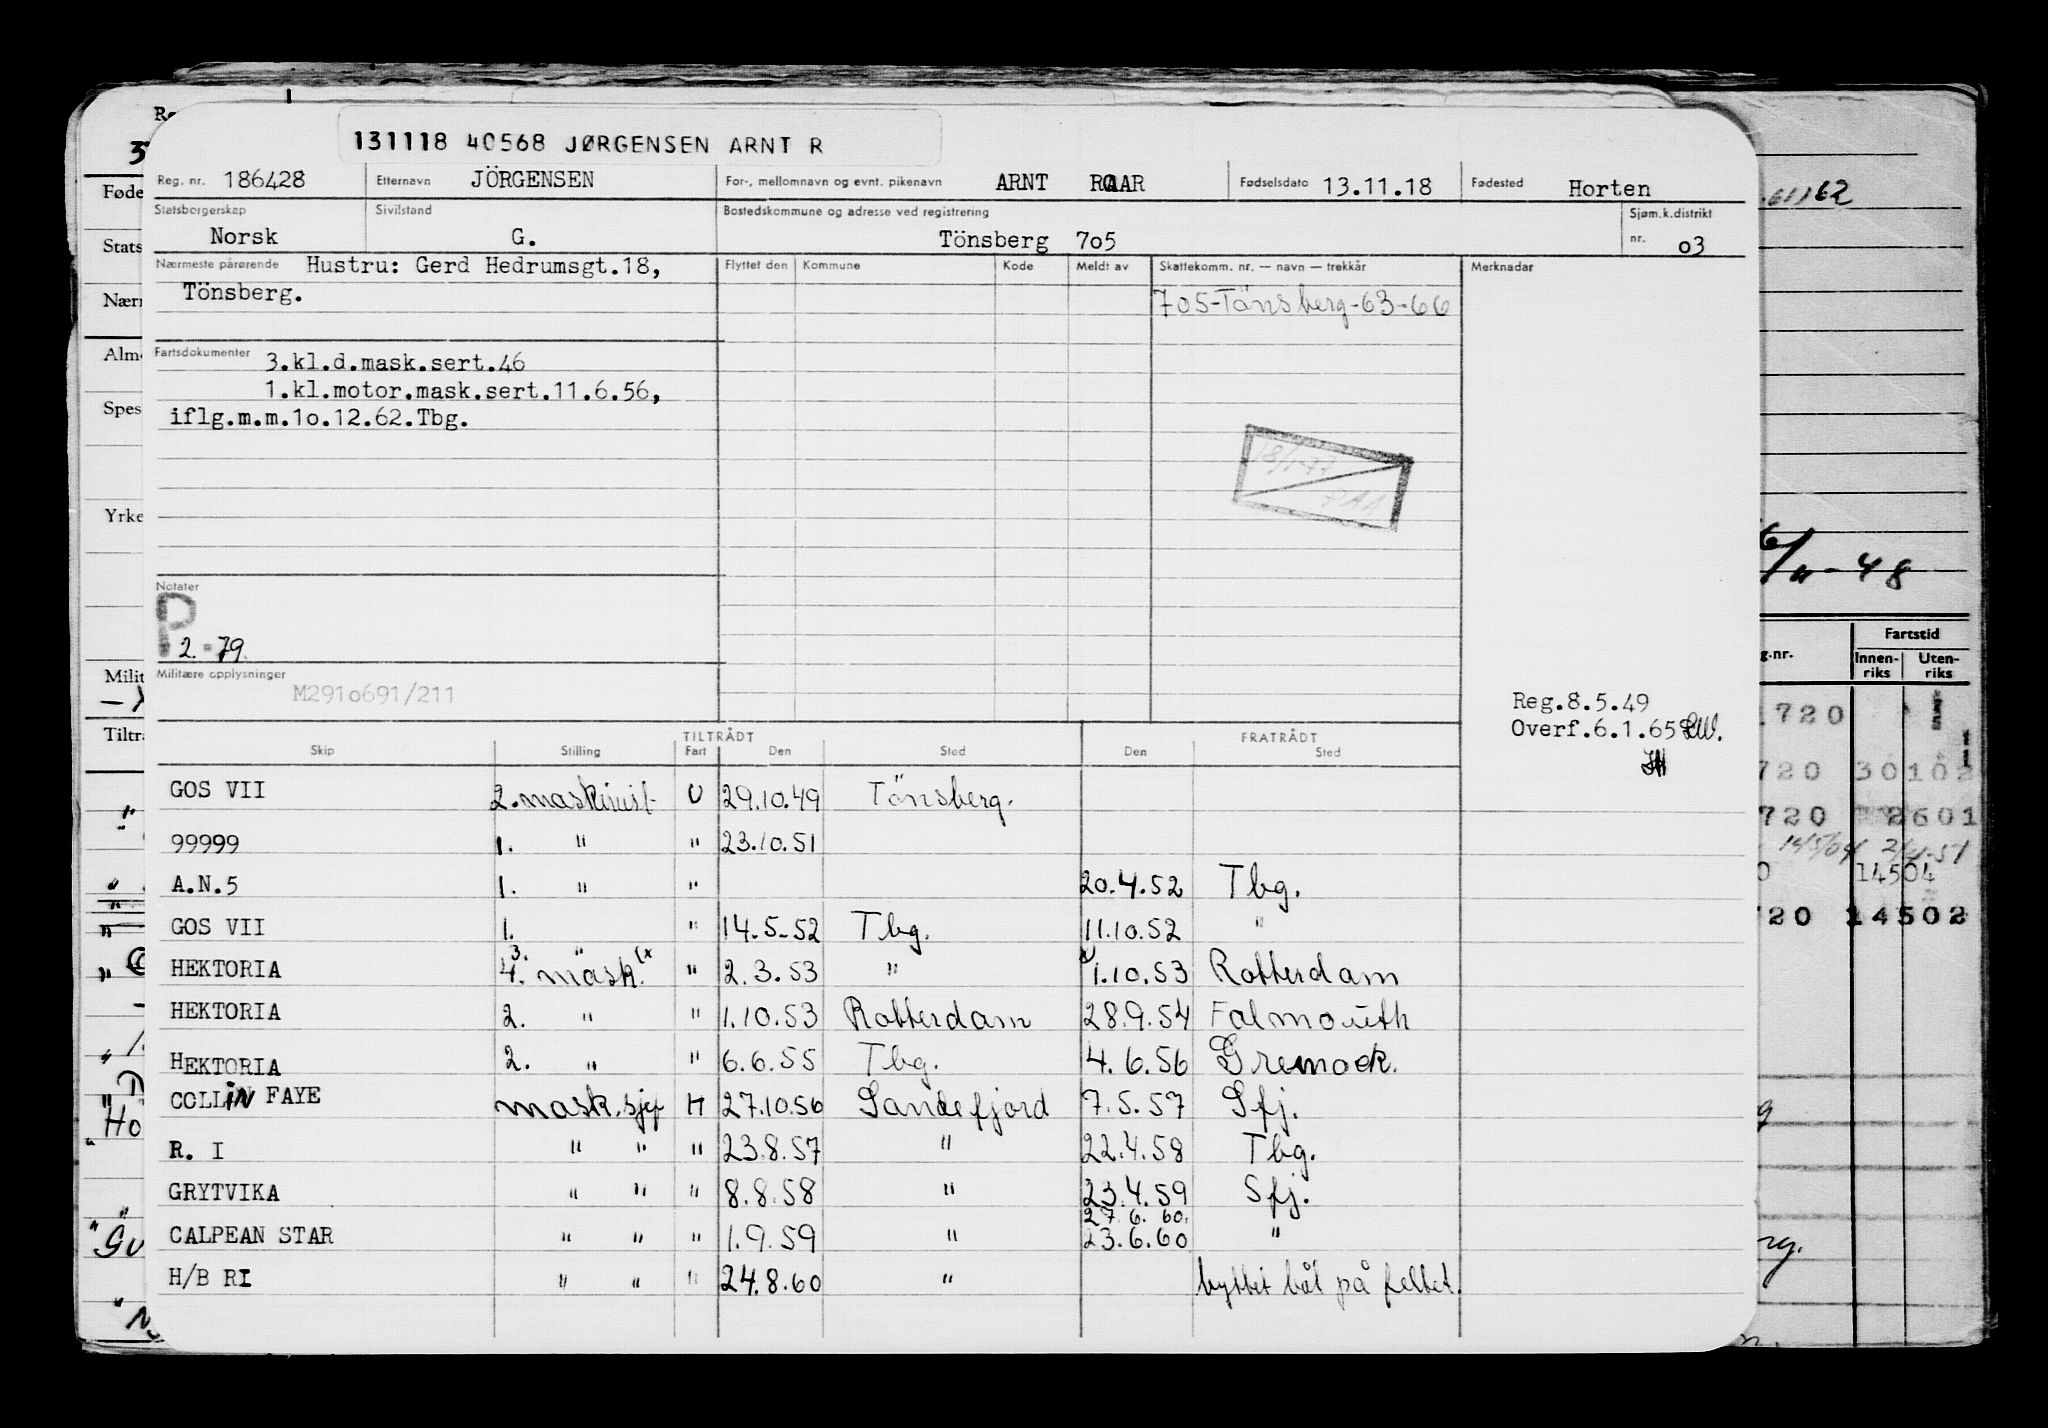 131118 40568 JØRGENSEN ARNT R
Reg. nr. 186428 Etternavn JÖRGENSEN For-, mellomnavn og evnt. pikenavn ARNT ROAR Fødselsdato 13.11.18 Fødested Horten
Statsborgerskap Norsk Sivilstand G. Bostedskommune og adresse ved registrering Tönsberg 7o5 Sjøm.k.distrikt nr. o3
Nærmeste pårørende Hustru: Gerd Hedrumsgt.18, Flyttet den Kommune Kode Meldt av Skattekomm. nr. — navn — trekkår Merknadar
Tönsberg. 705-Tönsberg-63-66
Fartsdokumenter 3.kl.d.mask.sert.46
1.kl.motor.mask.sert.11.6.56,
iflg.m.m.1o.12.62.Tbg.
18/1-77
PAA
Notater
P
2.-79.
Militære opplysninger
M291o691/211
Reg.8.5.49
Overf.6.1.65
TILTRÅDT FRATRÅDT
Skip Stilling Fart Den Sted Den Sted
GOS VII 2. maskinist U 29.10.49 Tönsberg.
99999 1. " " 23.10.51
A.N.5 1. " " 20.4.52 Tbg.
GOS VII 1. " 14.5-52 Tbg. 11.10.52 "
3. "
HEKTORIA 4. mask. " 2.3.53 " 1.10.53 Rotterdam
HEKTORIA 2. " " 1.10.53 Rotterdam 28.9.54 Falmouth
HEKTORIA 2. " " 6.6.55 Tbg. 4.6.56 Grenock.
COLLIN FAYE mask.sjef H 27.10.56 Sandefjord 7.5.57 Sfj.
R. I " " " 23.8.57 " 22.4.58 Tbg.
GRYTVIKA " " " 8.8.58 " 23.4.59 Sfj.
27.6.60.
CALPEAN STAR " " " 1.9.59 " 23.6.60 "
H/B RI " " " 24.8.60 " byttet båt på feltet.
Føde
Stats
Nærm
Alm
Spes
Yrke
Milit
Tiltr
62
-48
Fartstid
g.nr. Innen-riks Uten-riks
720
720 30102
720 2601
14504
720 14502